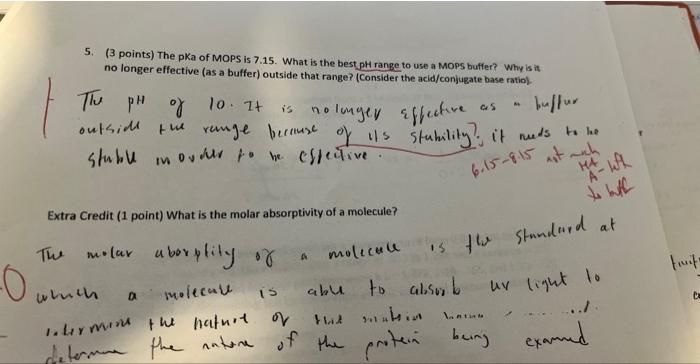 5. (3 points) The pKa of MOPS is 7.15. What is the best pH range to use a MOPS buffer? Why is it
no longer effective (as a buffer) outside that range? (Consider the acid/conjugate base ratio).
The pH of 10. It is no longer effective as a buffer
outside the range because of its stability? it needs to be
stable in order to be effective.
6.15-8.15 not much
HA
A- left
to buff
Extra Credit (1 point) What is the molar absorptivity of a molecule?
The molar of a molecule is the standard at
0 which a molecule is able to absorb uv light to
the nature of the
determine the nature of the protein being examed